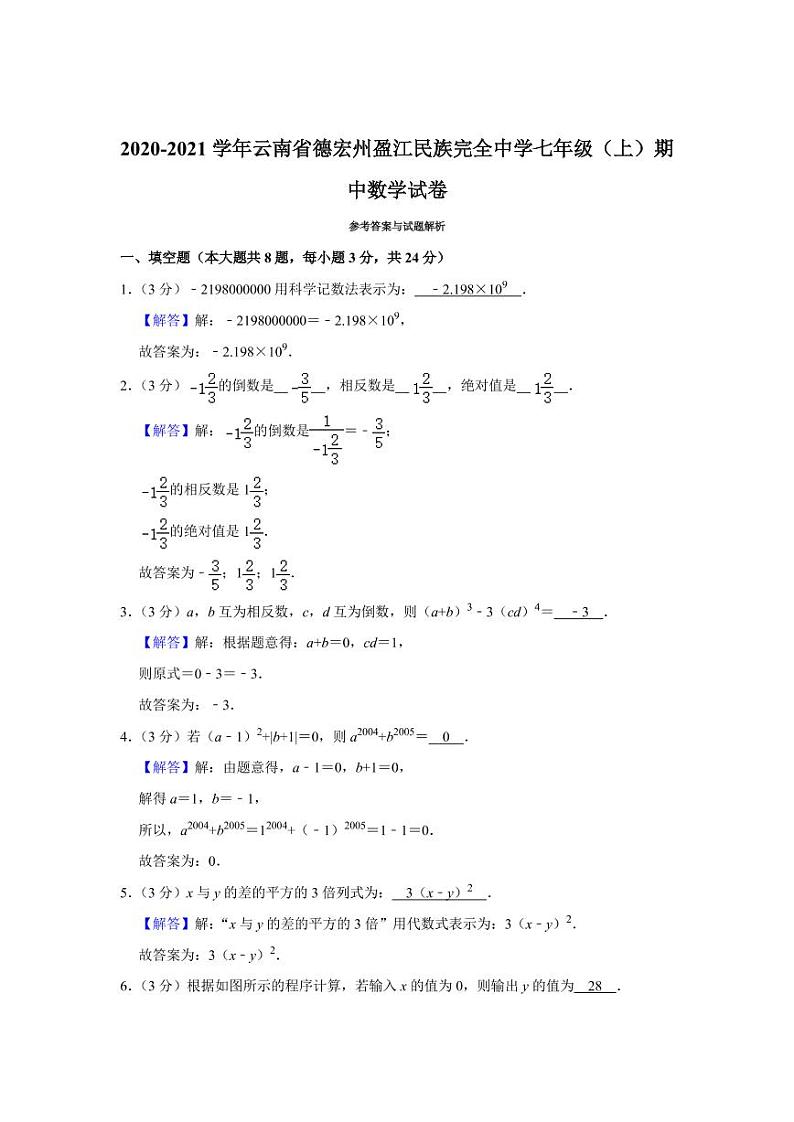 2020-2021 学年云南省德宏州盈江民族完全中学七年级（上）期
中数学试卷
参考答案与试题解析
一、填空题（本大题共 8 题，每小题 3 分，共 24 分）
1.（3 分）﹣2198000000 用科学记数法表示为： ﹣2.198×10⁹ ．
【解答】解：﹣2198000000＝﹣2.198×10⁹，
故答案为：﹣2.198×10⁹．
2.（3 分） -1 2/3 的倒数是 -3/5 ，相反数是 1 2/3 ，绝对值是 1 2/3 ．
【解答】解： -1 2/3 的倒数是 1/(-1 2/3)＝﹣3/5；
-1 2/3 的相反数是 1 2/3；
-1 2/3 的绝对值是 1 2/3．
故答案为﹣3/5；1 2/3；1 2/3．
3.（3 分）a，b 互为相反数，c，d 互为倒数，则（a+b）³﹣3（cd）⁴＝ ﹣3 ．
【解答】解：根据题意得：a+b＝0，cd＝1，
则原式＝0﹣3＝﹣3．
故答案为：﹣3．
4.（3 分）若（a﹣1）²+|b+1|＝0，则 a²⁰⁰⁴+b²⁰⁰⁵＝ 0 ．
【解答】解：由题意得，a﹣1＝0，b+1＝0，
解得 a＝1，b＝﹣1，
所以，a²⁰⁰⁴+b²⁰⁰⁵＝1²⁰⁰⁴+（﹣1）²⁰⁰⁵＝1﹣1＝0．
故答案为：0．
5.（3 分）x 与 y 的差的平方的 3 倍列式为： 3（x﹣y）² ．
【解答】解：“x 与 y 的差的平方的 3 倍”用代数式表示为：3（x﹣y）²．
故答案为：3（x﹣y）²．
6.（3 分）根据如图所示的程序计算，若输入 x 的值为 0，则输出 y 的值为 28 ．